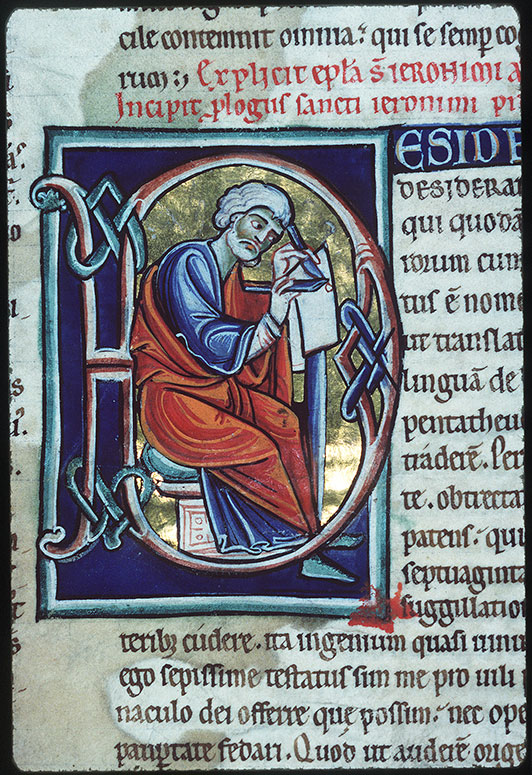 cile contemnit omnia: qui se semp co
rum:; Explicit epła S IERONIMI A
Incipit plogus sancti ieronimi pr
D ESIDE
DESIDERA
qui quodā
rorum cum
tus ē nome
ut translat
linguā de
pentatheu
traderē. Per
te. obtrecta
patens. qui
septuagint
suggillatio
teribꝫ cudere. ita ingenium quasi uinu
ego sepissime testatus sim me pro uili p
naculo dei offerre que possim. nec ope
paupertate fedari. Quod ut auderē orige